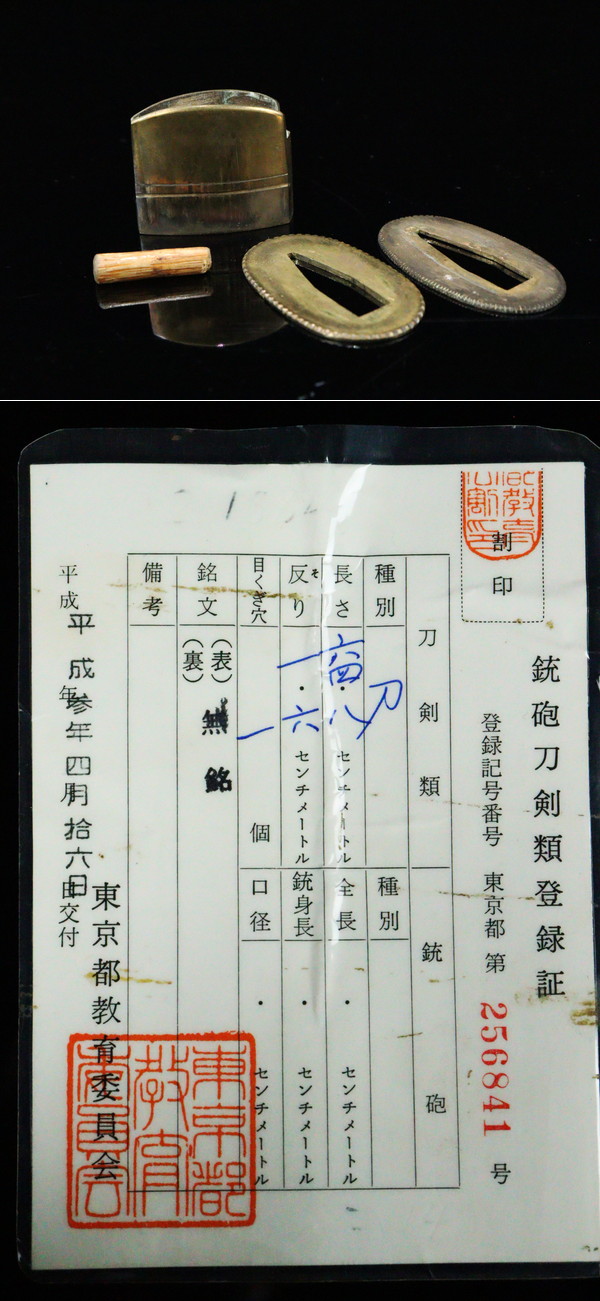 銃砲刀剣類登録証
割印
登録記号番号 東京都 第 256841 号
刀剣類
種別 刀
長さ 六四・八 センチメートル
反り そ 一・六 センチメートル
目くぎ穴 一 個
銘文 (表) 無銘
(裏)
備考
銃砲
種別
全長 ・ センチメートル
銃身長 ・ センチメートル
口径 ・ センチメートル
平成 年 月 日 交付
平成参年四月拾六日
東京都教育委員会
東京都
教育
委員会